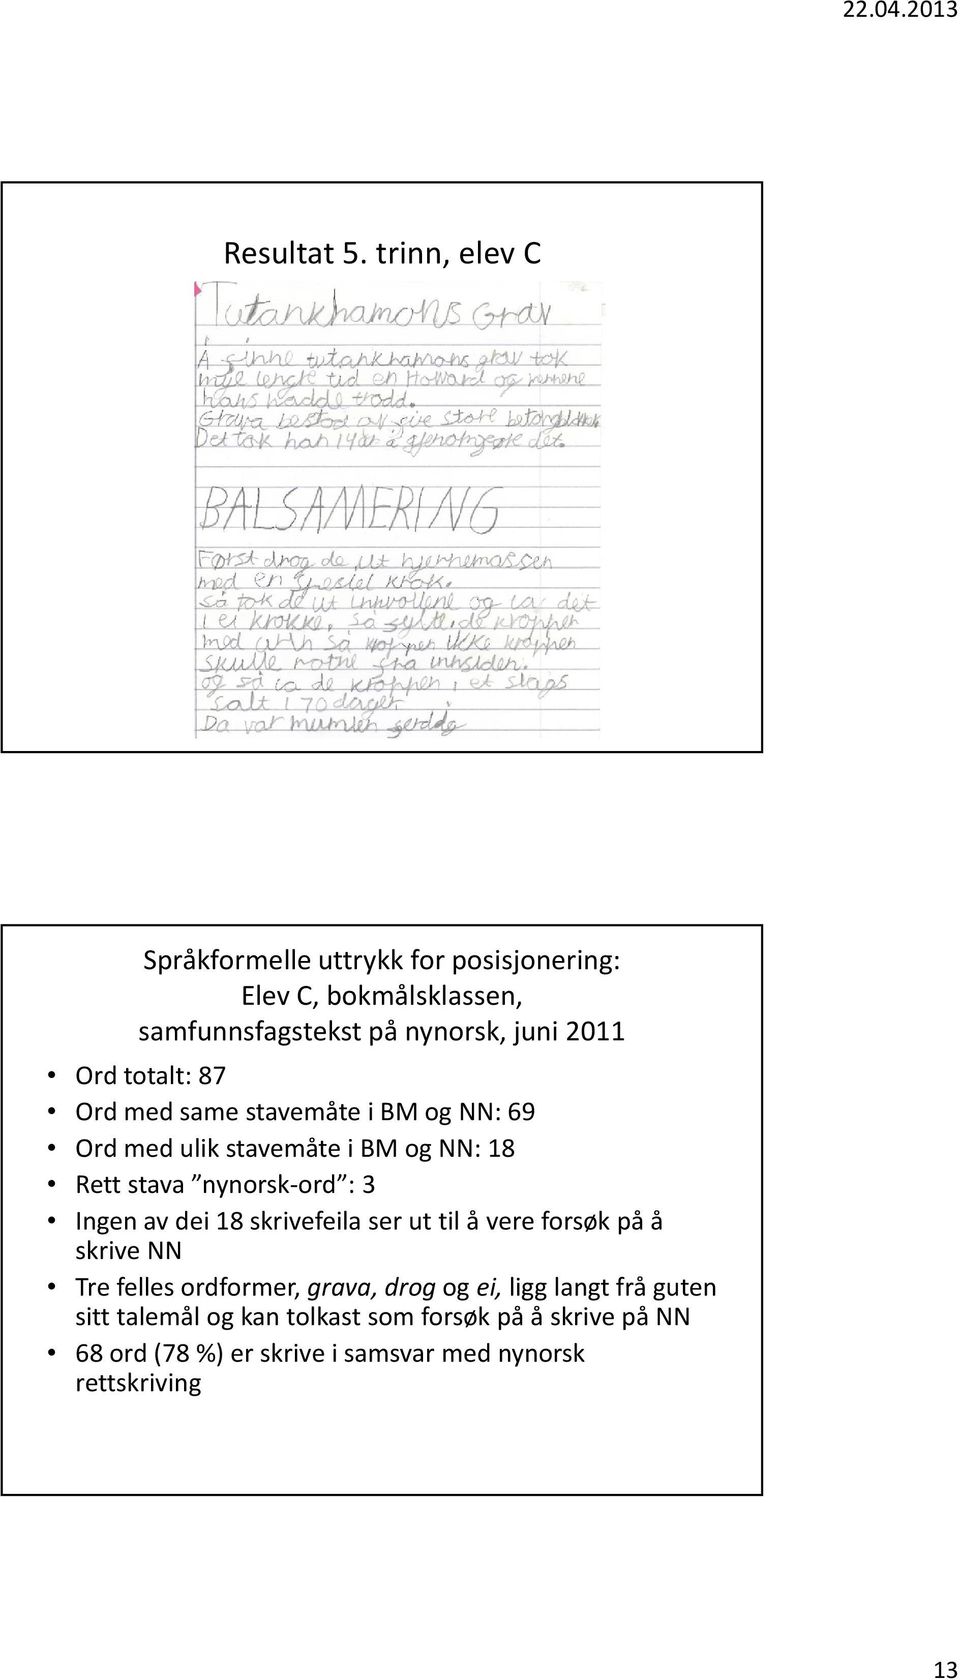 22.04.2013
Resultat 5. trinn, elev C
Tutankhamons Grav
Å finne tutankhamons grav tok
mye lengre tid en Howard og
hans hadde trodd.
Grava bestod av sive store
Det tok han 14 år å det.
BALSAMERING
Først drog de ut hjernemassen
med en spesiel krok.
så tok de ut innvollene og la det
i ei krokke, så sylte de kroppen
med så kroppen IKKE kroppen
skulle rotne fra innsiden.
og så la de kroppen i et slags
salt i 70 dager
Da var mumien
Språkformelle uttrykk for posisjonering:
Elev C, bokmålsklassen,
samfunnsfagstekst på nynorsk, juni 2011
• Ord totalt: 87
• Ord med same stavemåte i BM og NN: 69
• Ord med ulik stavemåte i BM og NN: 18
• Rett stava ”nynorsk-ord” : 3
• Ingen av dei 18 skrivefeila ser ut til å vere forsøk på å
skrive NN
• Tre felles ordformer, grava, drog og ei, ligg langt frå guten
sitt talemål og kan tolkast som forsøk på å skrive på NN
• 68 ord (78 %) er skrive i samsvar med nynorsk
rettskriving
13